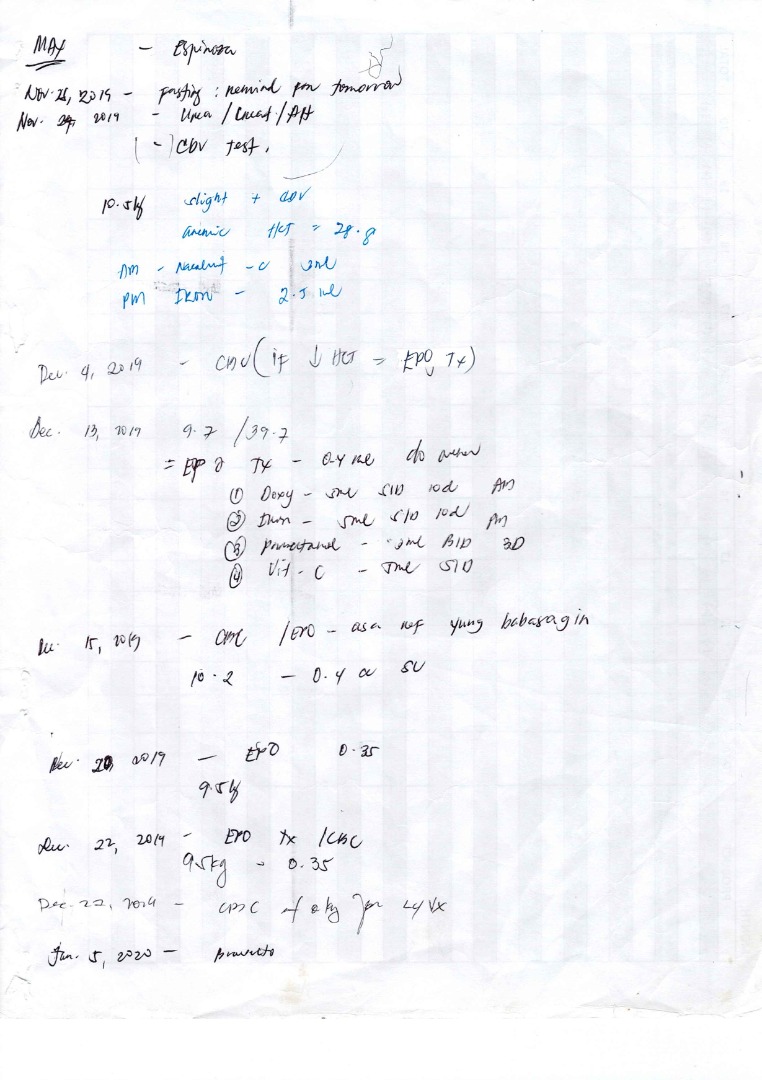 MAX - Espinoza
Nov. 28, 2019 - fasting : remind for tomorrow
Nov. 29, 2019 - Urea / Creat. /
(-) CDV test.
10.5kg slight + CDV
anemic HCT = 28.8
AM - - C 3ml
PM Iron - 2.5 ml
Dec. 4, 2019 - (if ↓ HCT = EPO Tx)
Dec. 13, 2019 9.7 / 39.7
= EPO Tx - 0.4 ml
① Doxy - 5ml SID 10d AM
② Iron - 5ml SID 10d PM
③ - 3ml BID 3D
④ Vit - C - 5ml SID
Dec. 15, 2019 - CBC / EPO - asa ref yung babasagin
10.2 - 0.4 SC
Dec. 20, 2019 - EPO 0.35
9.5kg
Dec. 22, 2019 - EPO Tx / CBC
9.5kg - 0.35
- CBC if okay for Vx
Jan. 5, 2020 - Bravecto